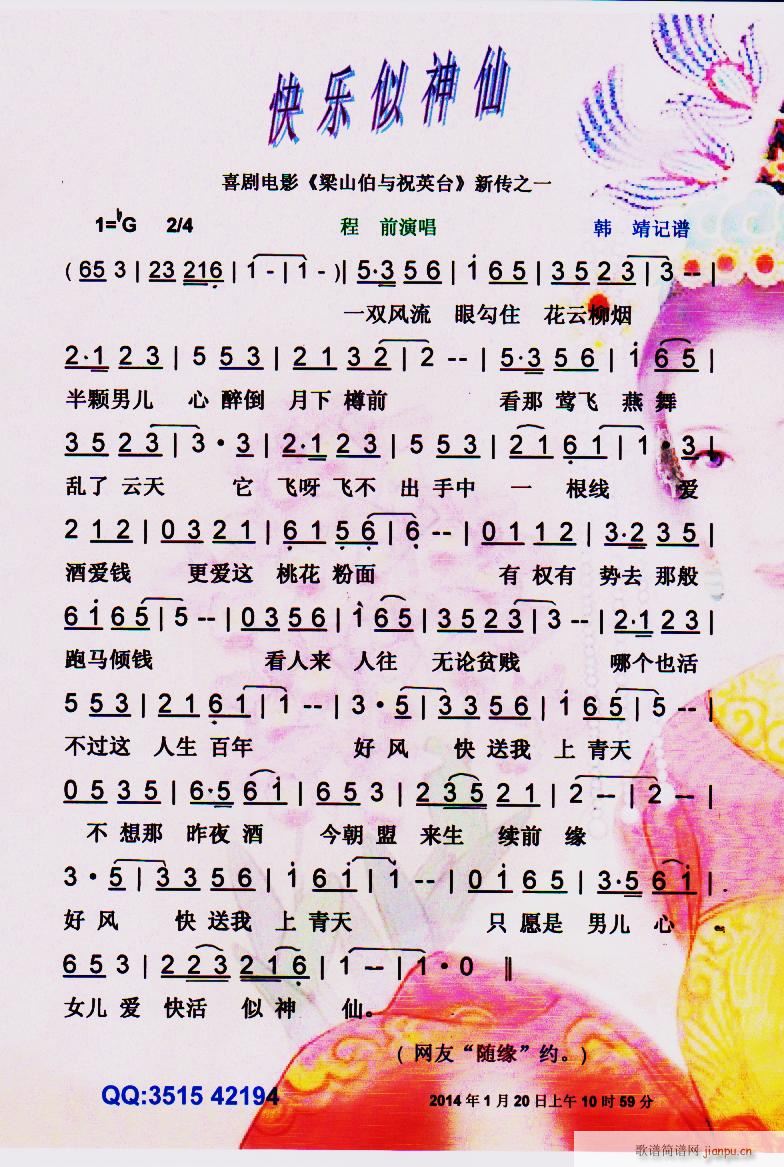 快乐似神仙
喜剧电影《梁山伯与祝英台》新传之一
1=♭G 2/4 程 前演唱 韩 靖记谱
( 65 3 | 23 216 | 1 - | 1 - )| 5·3 5 6 | 1 6 5 | 3 5 2 3 | 3 -- |
一双风流 眼勾住 花云柳烟
2·1 2 3 | 5 5 3 | 2 1 3 2 | 2 -- | 5·3 5 6 | 1 6 5 |
半颗男儿 心 醉倒 月下 樽前 看那 莺飞 燕 舞
3 5 2 3 | 3 · 3 | 2·1 2 3 | 5 5 3 | 2 1 6 1 | 1 · 3 |
乱了 云天 它 飞呀 飞不 出 手中 一 根线 爱
2 1 2 | 0 3 2 1 | 6 1 5 6 | 6 -- | 0 1 1 2 | 3·2 3 5 |
酒爱钱 更爱这 桃花 粉面 有 权有 势去 那般
6 1 6 5 | 5 -- | 0 3 5 6 | 1 6 5 | 3 5 2 3 | 3 -- | 2·1 2 3 |
跑马倾钱 看人来 人往 无论贫贱 哪个也活
5 5 3 | 2 1 6 1 | 1 -- | 3 · 5 | 3 3 5 6 | 1 6 5 | 5 --
不过这 人生 百年 好 风 快 送我 上 青天
0 5 3 5 | 6·5 6 1 | 6 5 3 | 2 3 5 2 1 | 2 -- | 2 -- |
不 想那 昨夜 酒 今朝 盟 来生 续前 缘
3 · 5 | 3 3 5 6 | 1 6 1 | 1 -- | 0 1 6 5 | 3·5 6 1 |
好 风 快 送我 上 青天 只 愿是 男儿 心
6 5 3 | 2 2 3 2 1 6 | 1 -- | 1 · 0 ‖
女儿 爱 快活 似 神 仙。
( 网友“随缘”约。)
QQ:3515 42194 2014年1月20日上午10时59分
歌谱简谱网
jianpu.cn